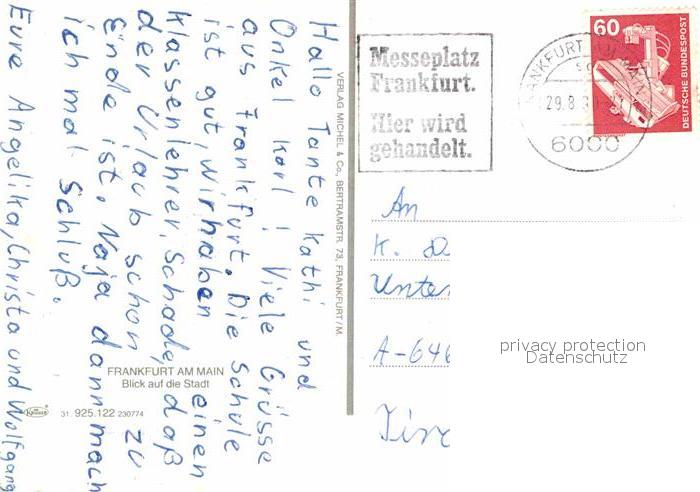 Hallo Tante Kathi und
Onkel Karl! Viele Grüsse
aus Frankfurt. Die Schule
ist gut, wir haben einen
Klassenlehrer. Schade, daß
der Urlaub schon zu
Ende ist. Naja dann mach
ich mal Schluß.
Eure Angelika, Christa und Wolfgang
VERLAG MICHEL & Co., BERTRAMSTR. 73, FRANKFURT/M.
FRANKFURT AM MAIN
Blick auf die Stadt
Krüger
31. 925.122 230774
Messeplatz
Frankfurt.
Hier wird
gehandelt.
FRANKFURT AM MAIN
29.8.
6000
60
DEUTSCHE BUNDESPOST
An
K.
Unter
A-646
privacy protection
Datenschutz